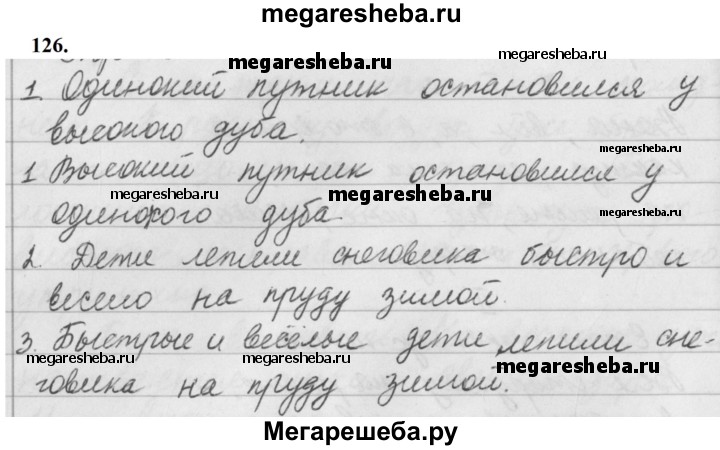 megaresheba.ru
126.
megaresheba.ru
megaresheba.ru
1. Одинокий путник остановился у
высокого дуба.
megaresheba.ru
1 Высокий путник остановился у
megaresheba.ru
megaresheba.ru
одинокого дуба.
megaresheba.ru
2. Дети лепили снеговика быстро и
весело на пруду зимой.
3. Быстрые и весёлые дети лепили сне-
megaresheba.ru
megaresheba.ru
megaresheba.ru
говика на пруду зимой.
Мегарешеба.ру